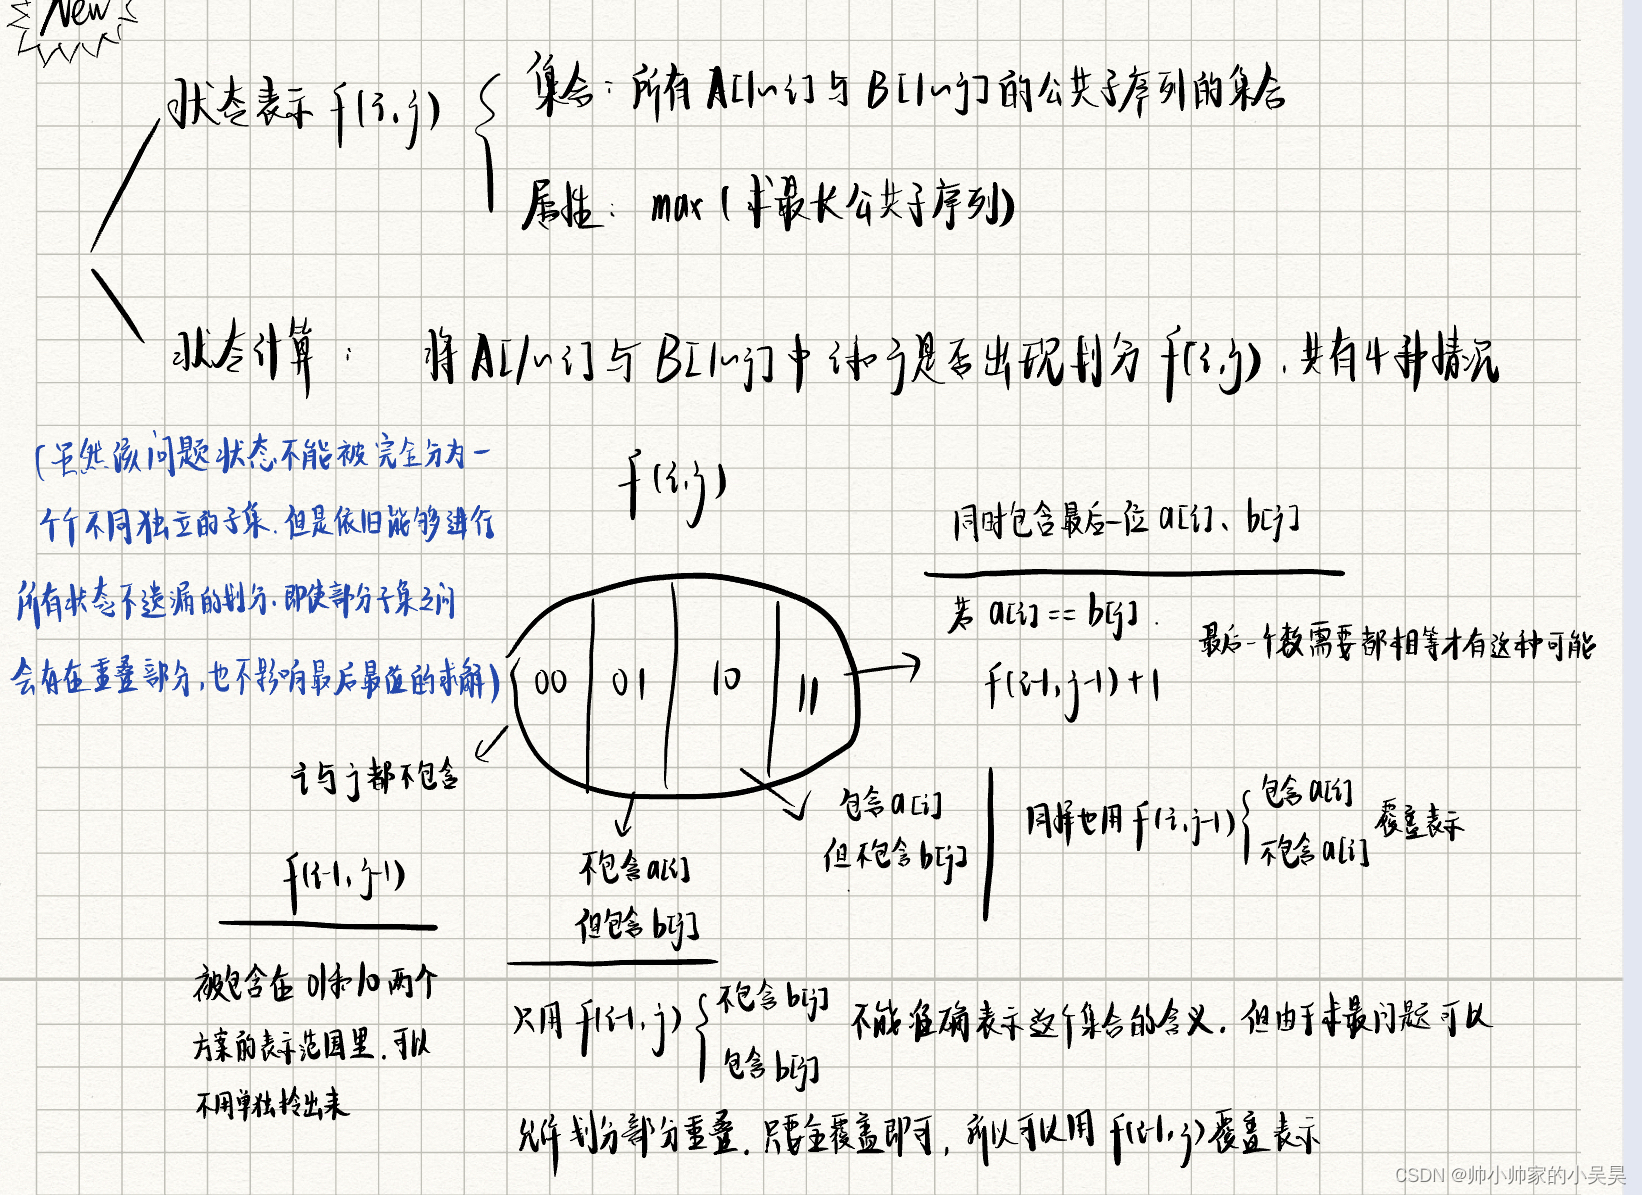 New
状态表示 f(i,j)
集合：所有A[1~i]与B[1~j]的公共子序列的集合
属性： max（求最长公共子序列）
状态计算： 将A[1~i]与B[1~j]中i和j是否出现划分 f(i,j)，共有4种情况
（虽然该问题状态不能被完全分为一
个个不同独立的子集，但是依旧能够进行
所有状态不遗漏的划分，即使部分子集之间
会存在重叠部分，也不影响最后最值的求解）
f(i,j)
00 01 10 11
同时包含最后一位 a[i]、b[j]
若 a[i]==b[j].
最后一个数需要都相等才有这种可能
f(i-1,j-1)+1
i与j都不包含
f(i-1,j-1)
被包含在 01和10两个
方案的表示范围里，可以
不用单独拎出来
不包含a[i]
但包含 b[j]
包含a[i]
但不包含 b[j]
同样也用 f(i,j-1)
包含a[i]
不包含a[i]
覆盖表示
只用 f(i-1,j)
不包含b[j]
包含b[j]
不能准确表示这个集合的含义，但由于求最问题可以
允许划分部分重叠，只要全覆盖即可，所以可以用 f(i-1,j)覆盖表示
CSDN @帅小帅家的小吴昊